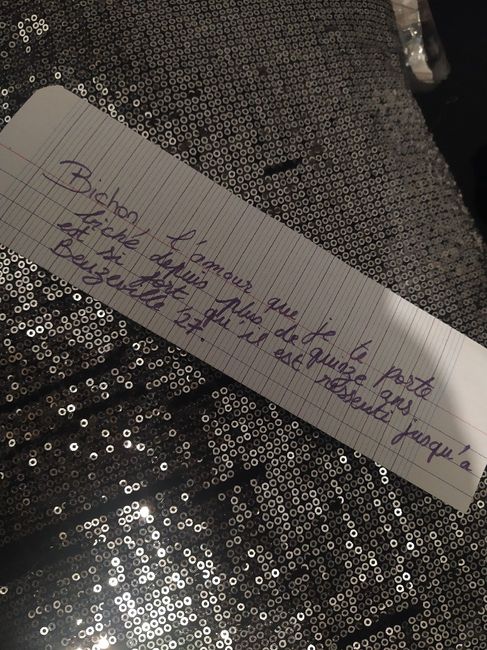 Bichon, l'amour que je te porte
depuis plus de quinze ans,
est si fort qu'il est ressenti jusqu'à
Beuzeville 27.